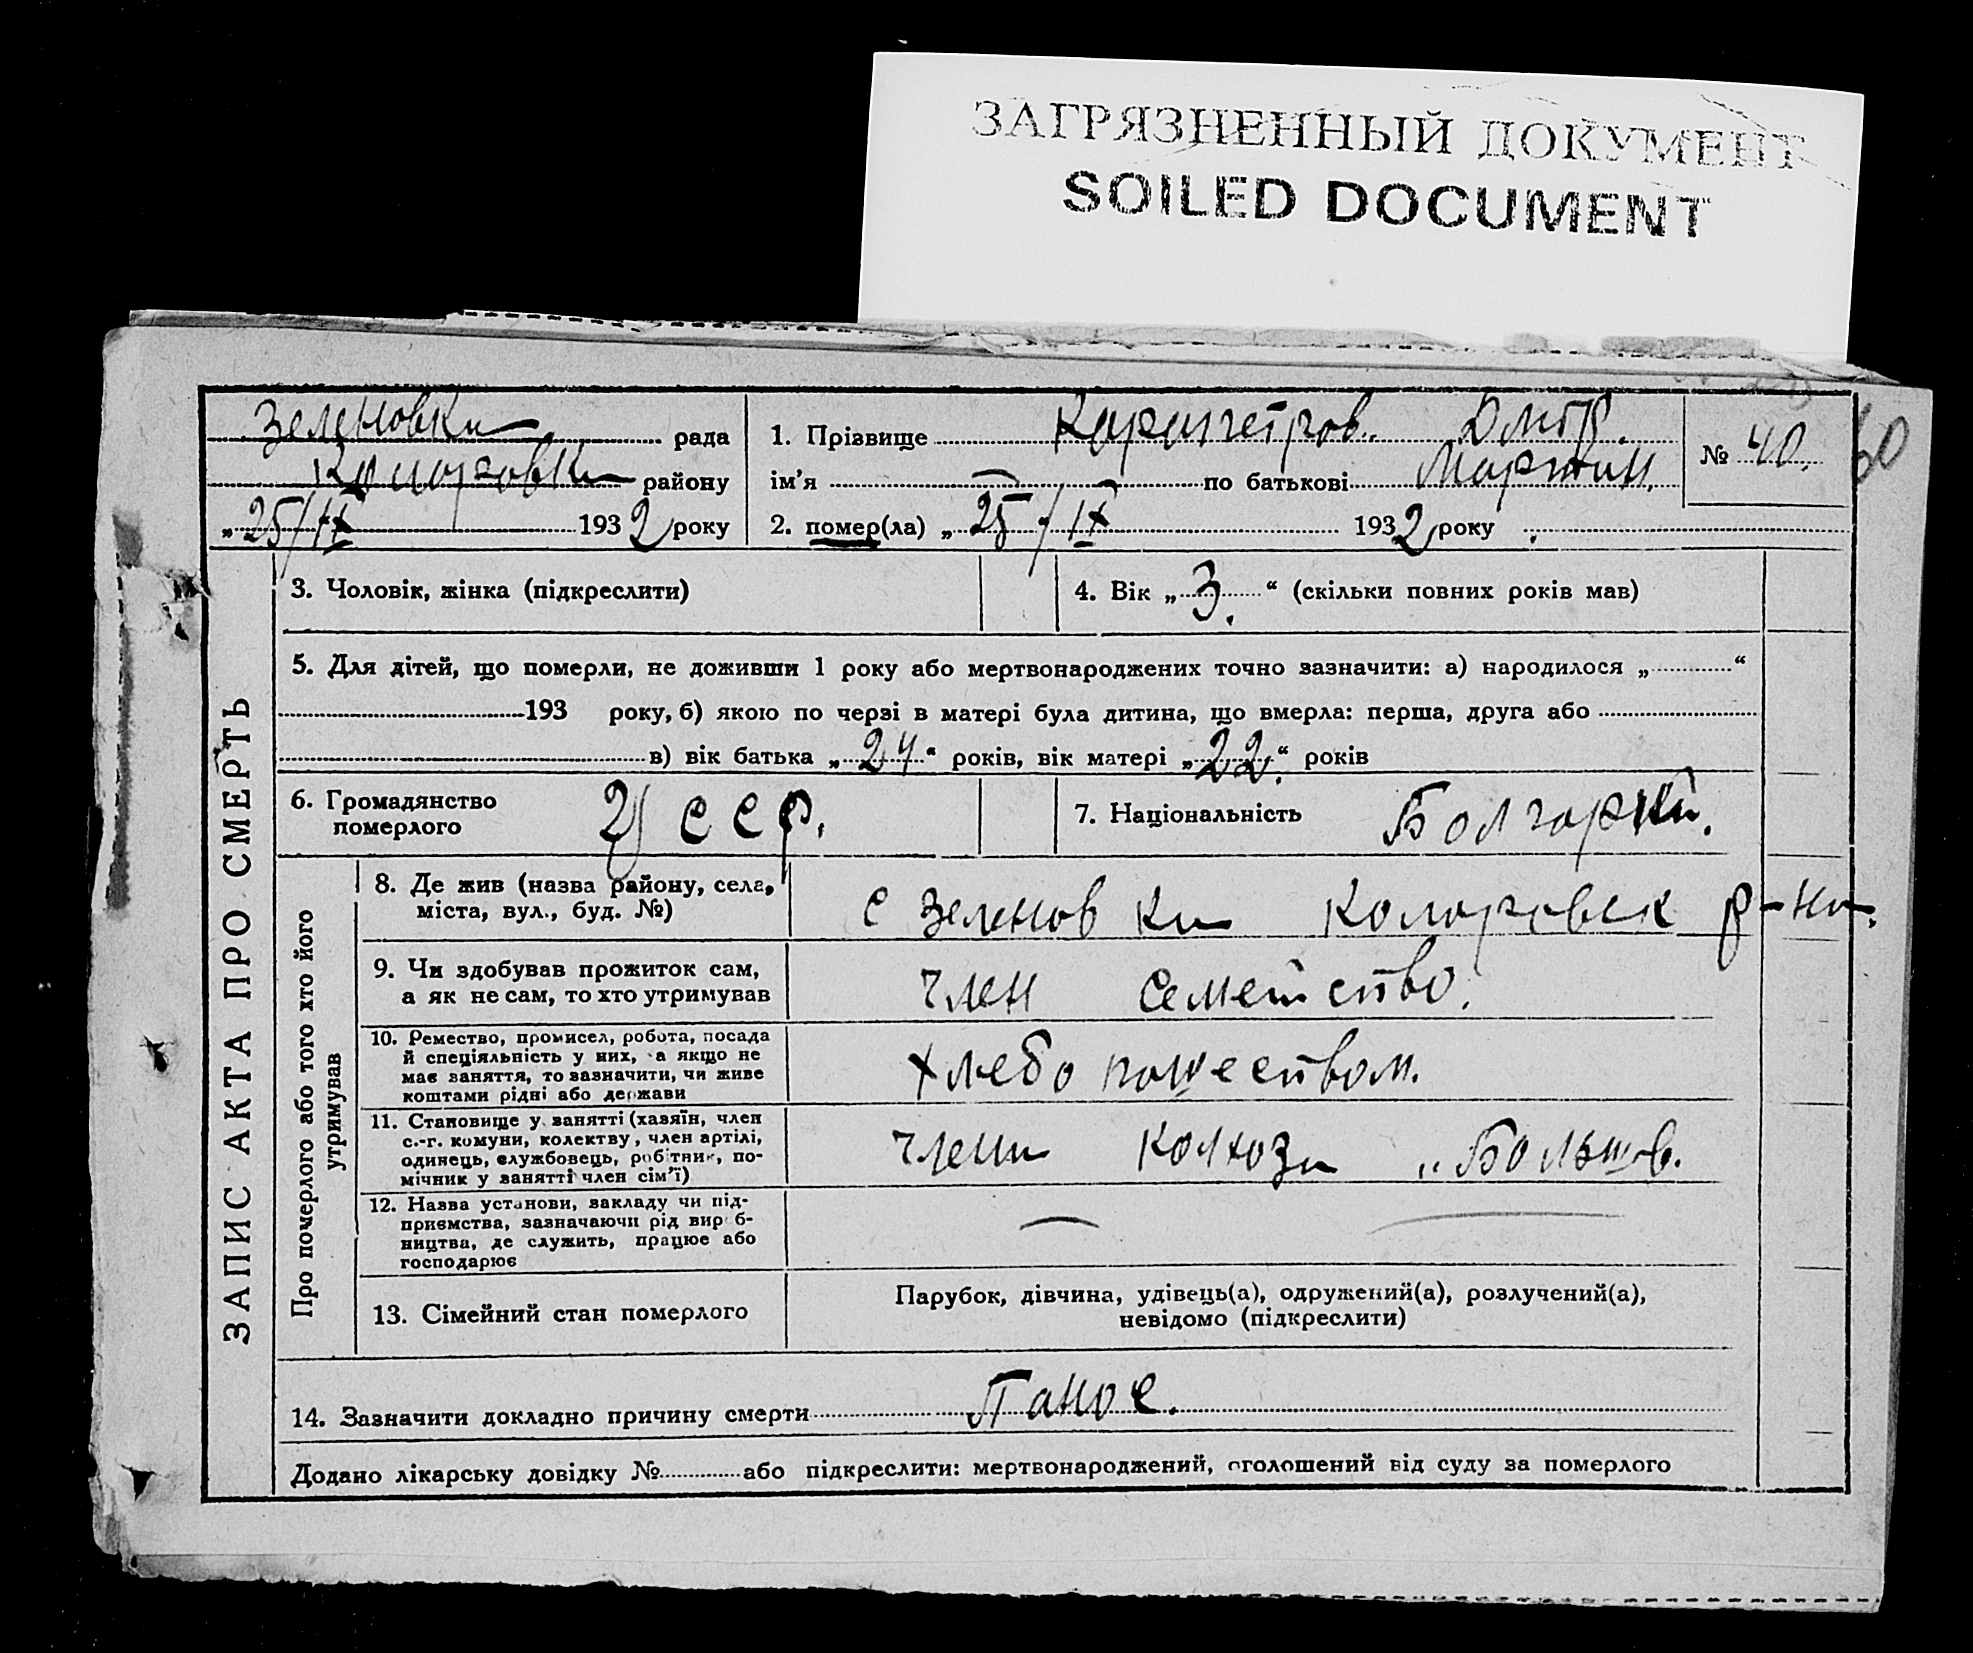 ЗАГРЯЗНЕННЫЙ ДОКУМЕНТ
SOILED DOCUMENT
ЗАПИС АКТА ПРО СМЕРТЬ
Зеленовка рада
району
„25/IX 1932 року
1. Прізвище Карапетров. Дмтр.
ім'я по батькові Мартин.
2. помер(ла) „25/IX 1932 року
№ 40.
3. Чоловік, жінка (підкреслити)
4. Вік „3.“ (скільки повних років мав)
5. Для дітей, що померли, не доживши 1 року або мертвонароджених точно зазначити: а) народилося „ “
193 року, б) якою по черзі в матері була дитина, що вмерла: перша, друга або
в) вік батька „24“ років, вік матері „22.“ років
6. Громадянство
померлого
УССР.
7. Національність Болгарий.
Про померлого або того хто його
утримував
8. Де жив (назва району, села,
міста, вул., буд. №)
с Зеленовка Коларовск р-на.
9. Чи здобував прожиток сам,
а як не сам, то хто утримував
член семейство.
10. Ремество, промисел, робота, посада
й спеціяльність у них, а якщо не
має заняття, то зазначити, чи живе
коштами рідні або держави
хлебопашеством.
11. Становище у занятті (хазяїн, член
с.-г. комуни, колектву, член артілі,
одинець, службовець, робітник, по-
мічник у занятті член сім'ї)
члени колхоза „Большов.
12. Назва установи, закладу чи під-
приємства, зазначаючи рід вироб-
ництва, де служить, працює або
господарює
13. Сімейний стан померлого
Парубок, дівчина, удівець(а), одружений(а), розлучений(а),
невідомо (підкреслити)
14. Зазначити докладно причину смерти Панос.
Додано лікарську довідку № або підкреслити: мертвонароджений, оголошений від суду за померлого